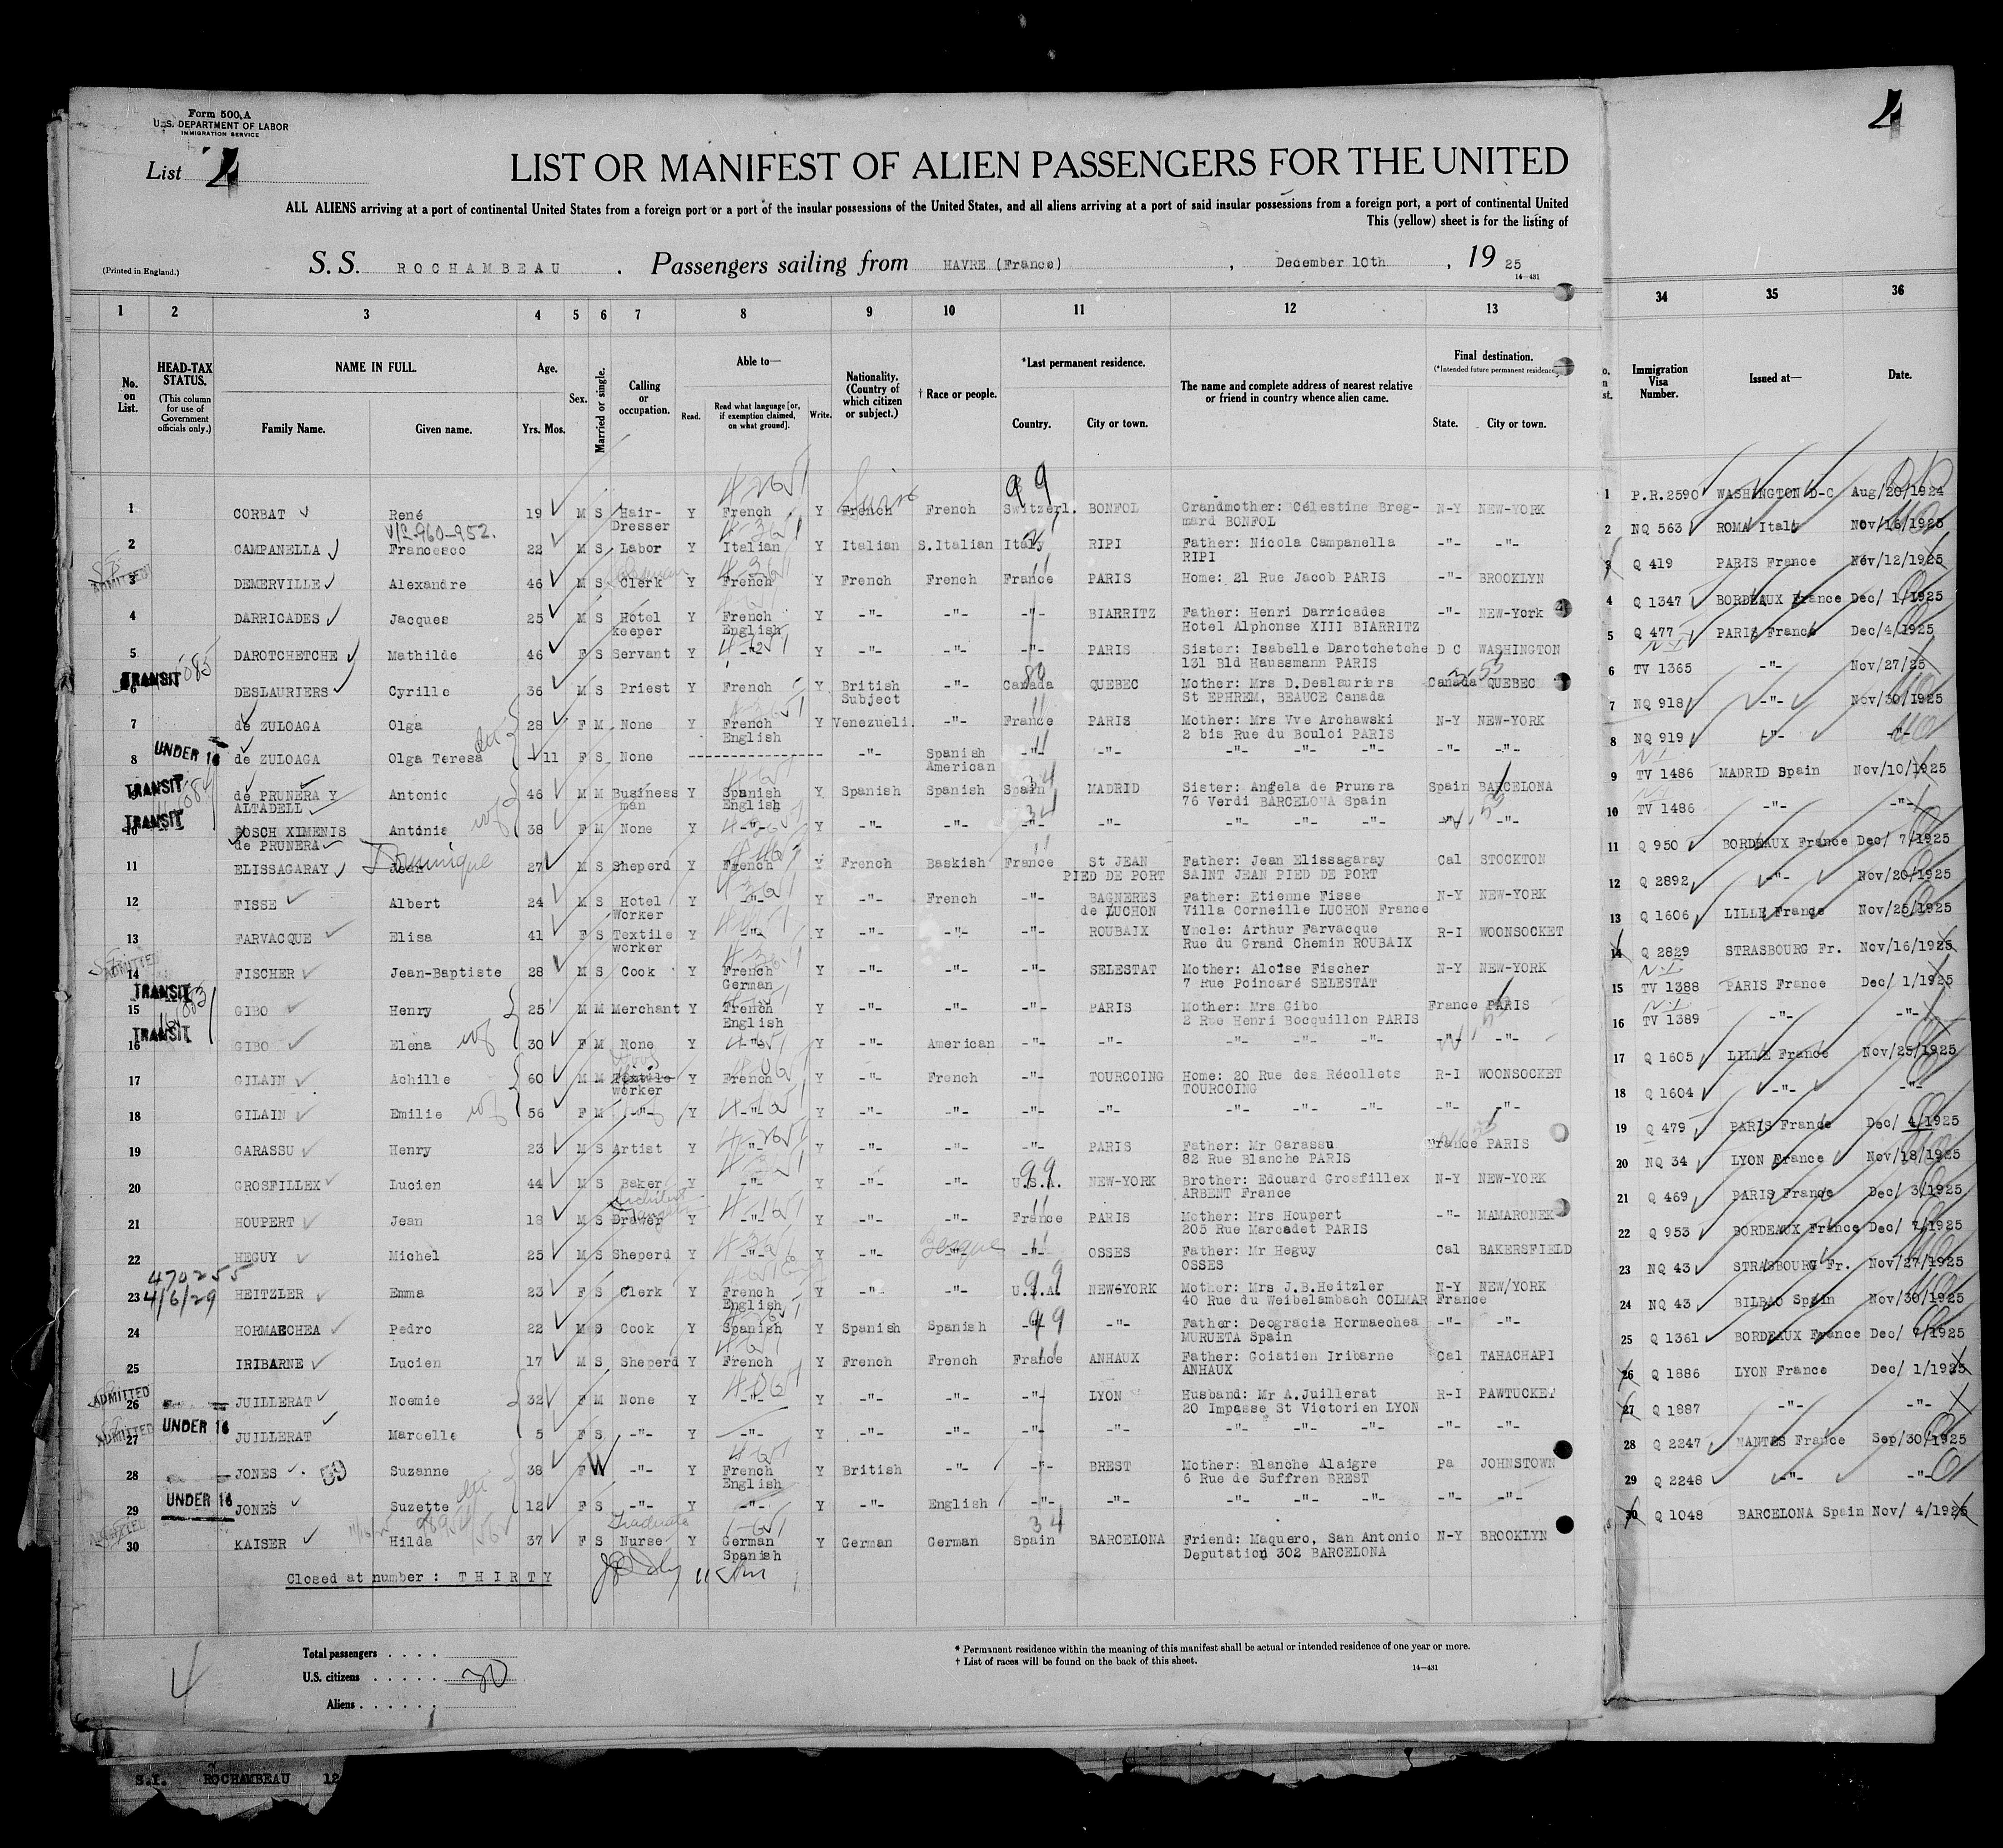 Form 500 A
U.S. DEPARTMENT OF LABOR
IMMIGRATION SERVICE
List 4
4
LIST OR MANIFEST OF ALIEN PASSENGERS FOR THE UNITED
ALL ALIENS arriving at a port of continental United States from a foreign port or a port of the insular possessions of the United States, and all aliens arriving at a port of said insular possessions from a foreign port, a port of continental United
This (yellow) sheet is for the listing of
(Printed in England.)
S.S. ROCHAMBEAU . Passengers sailing from HAVRE (France) , December 10th , 19 25
14-431
1 2 3 4 5 6 7 8 9 10 11 12 13 34 35 36
No. on List.
HEAD-TAX STATUS.
(This column for use of Government officials only.)
NAME IN FULL.
Family Name. Given name.
Age.
Yrs. Mos.
Sex.
Married or single.
Calling or occupation.
Able to—
Read. Read what language [or, if exemption claimed, on what ground]. Write.
Nationality. (Country of which citizen or subject.)
† Race or people.
*Last permanent residence.
Country. City or town.
The name and complete address of nearest relative or friend in country whence alien came.
Final destination.
(*Intended future permanent residence.)
State. City or town.
Immigration Visa Number.
Issued at—
Date.
1 CORBAT René 19 M S Hair- Y French Y French Swiss French Switzerl. 99 BONFOL Grandmother: Célestine Breg- N-Y NEW-YORK 1 P.R.2590 WASHINGTON D-C Aug/20/1924
Dresser mard BONFOL
V/L-960-952.
2 CAMPANELLA Francesco 22 M S Labor Y Italian Y Italian S.Italian Italy RIPI Father: Nicola Campanella -"- -"- 2 NQ 563 ROMA Italy Nov/16/1925
RIPI
ADMITTED
3 DEMERVILLE Alexandre 46 M S Clerk Y French Y French French France PARIS Home: 21 Rue Jacob PARIS -"- BROOKLYN 3 Q 419 PARIS France Nov/12/1925
4 DARRICADES Jacques 25 M S Hotel Y French Y -"- -"- -"- BIARRITZ Father: Henri Darricades -"- NEW-York 4 Q 1347 BORDEAUX France Dec/ 1/1925
keeper English Hotel Alphonse XIII BIARRITZ
5 DAROTCHETCHE Mathilde 46 F S Servant Y -"- Y -"- -"- PARIS Sister: Isabelle Darotchetche D C WASHINGTON 5 Q 477 PARIS France Dec/4/1925
131 Bld Haussmann PARIS
TRANSIT
6 DESLAURIERS Cyrille 36 M S Priest Y French Y British -"- Canada 80 QUEBEC Mother: Mrs D.Deslauriers Canada QUEBEC 6 TV 1365 -"- Nov/27/25
Subject St EPHREM, BEAUCE Canada
7 de ZULOAGA Olga 28 F M None Y French Y Venezueli. -"- France PARIS Mother: Mrs Vve Archawski N-Y NEW-YORK 7 NQ 918 -"- Nov/30/1925
English 2 bis Rue du Bouloi PARIS
UNDER 16
8 de ZULOAGA Olga Teresa - 11 F S None -"- Spanish -"- -"- -"- -"- -"- -"- -"- -"- 8 NQ 919 -"- -"-
American
TRANSIT
9 de PRUNERA Y Antonio 46 M M Business Y Spanish Y Spanish Spanish Spain 34 MADRID Sister: Angela de Prunera Spain BARCELONA 9 TV 1486 MADRID Spain Nov/10/1925
ALTADELL man English 76 Verdi BARCELONA Spain
TRANSIT
10 BOSCH XIMENIS Antonia 38 F M None Y -"- Y -"- -"- 34 -"- -"- -"- -"- -"- -"- -"- 10 TV 1486 -"- -"-
de PRUNERA
11 ELISSAGARAY Jean Dominique 27 M S Sheperd Y French Y French Baskish France St JEAN Father: Jean Elissagaray Cal STOCKTON 11 Q 950 BORDEAUX France Dec/ 7/1925
PIED DE PORT SAINT JEAN PIED DE PORT
12 FISSE Albert 24 M S Hotel Y -"- Y -"- French -"- BAGNERES Father: Etienne Fisse N-Y NEW-YORK 12 Q 2892 -"- Nov/20/1925
Worker de LUCHON Villa Corneille LUCHON France
13 FARVACQUE Elisa 41 F S Textile Y -"- Y -"- -"- -"- ROUBAIX Uncle: Arthur Farvacque R-I WOONSOCKET 13 Q 1606 LILLE France Nov/25/1925
worker Rue du Grand Chemin ROUBAIX
ADMITTED
14 FISCHER Jean-Baptiste 28 M S Cook Y French Y -"- -"- -"- SELESTAT Mother: Aloïse Fischer N-Y NEW-YORK 14 Q 2829 STRASBOURG Fr. Nov/16/1925
German 7 Rue Poincaré SELESTAT
TRANSIT
15 GIBO Henry 25 M M Merchant Y French Y -"- -"- -"- PARIS Mother: Mrs Gibo France PARIS 15 TV 1388 PARIS France Dec/ 1/1925
English 2 Rue Henri Bocquillon PARIS
TRANSIT
16 GIBO Elena 30 F M None Y -"- Y -"- American -"- -"- -"- -"- -"- -"- 16 TV 1389 -"- -"-
17 GILAIN Achille 60 M M Textile Y French Y -"- French -"- TOURCOING Home: 20 Rue des Récollets R-I WOONSOCKET 17 Q 1605 LILLE France Nov/25/1925
worker TOURCOING
18 GILAIN Emilie 56 F M -"- Y -"- Y -"- -"- -"- -"- -"- -"- -"- -"- -"- 18 Q 1604 -"- -"-
19 GARASSU Henry 23 M S Artist Y -"- Y -"- -"- -"- PARIS Father: Mr Garassu France PARIS 19 Q 479 PARIS France Dec/ 4/1925
82 Rue Blanche PARIS
20 GROSFILLEX Lucien 44 M S Baker Y -"- Y -"- -"- U.S.A. 99 NEW-YORK Brother: Edouard Grosfillex N-Y NEW-YORK 20 NQ 34 LYON France Nov/18/1925
ARBENT France
21 HOUPERT Jean 18 M S Drawer Y -"- Y -"- -"- France PARIS Mother: Mrs Houpert -"- MAMARONEK 21 Q 469 PARIS France Dec/ 3/1925
205 Rue Marcadet PARIS
22 HEGUY Michel 25 M S Sheperd Y -"- Y -"- -"- Basque -"- OSSES Father: Mr Heguy Cal BAKERSFIELD 22 Q 953 BORDEAUX France Dec/ 7/1925
OSSES
470255
4/6/29
23 HEITZLER Emma 23 F S Clerk Y French Y -"- -"- U.S.A. 99 NEW6YORK Mother: Mrs J.B.Heitzler N-Y NEW/YORK 23 NQ 43 STRASBOURG Fr. Nov/27/1925
English 40 Rue du Weibelambach COLMAR France
24 HORMAECHEA Pedro 22 M S Cook Y Spanish Y Spanish Spanish -"- 99 -"- Father: Deogracia Hormaechea -"- -"- 24 NQ 43 BILBAO Spain Nov/30/1925
MURUETA Spain
25 IRIBARNE Lucien 17 M S Sheperd Y French Y French French France ANHAUX Father: Goiatien Iribarne Cal TAHACHAPI 25 Q 1361 BORDEAUX France Dec/ 7/1925
ANHAUX
ADMITTED
26 JUILLERAT Noemie 32 F M None Y -"- Y -"- -"- -"- LYON Husband: Mr A.Juillerat R-I PAWTUCKET 26 Q 1886 LYON France Dec/ 1/1925
20 Impasse St Victorien LYON
ADMITTED UNDER 16
27 JUILLERAT Marcelle 5 F S -"- Y -"- Y -"- -"- -"- -"- -"- -"- -"- -"- -"- 27 Q 1887 -"- -"-
28 JONES 59 Suzanne 38 F W -"- Y French Y British -"- -"- BREST Mother: Blanche Alaigre Pa JOHNSTOWN 28 Q 2247 NANTES France Sep/30/1925
English 6 Rue de Suffren BREST
UNDER 16
29 JONES Suzette 12 F S -"- Y -"- Y -"- English -"- -"- -"- -"- -"- -"- -"- 29 Q 2248 -"- -"-
ADMITTED
30 KAISER Hilda 37 F S Graduate Nurse Y German Y German German Spain 34 BARCELONA Friend: Maquero, San Antonio N-Y BROOKLYN 30 Q 1048 BARCELONA Spain Nov/ 4/1925
Spanish Deputation 302 BARCELONA
Closed at number : THIRTY
Total passengers . . . .
U.S. citizens . . . . . 30
Aliens . . . . . .
4
* Permanent residence within the meaning of this manifest shall be actual or intended residence of one year or more.
† List of races will be found on the back of this sheet.
14-431
S.I. ROCHAMBEAU 12